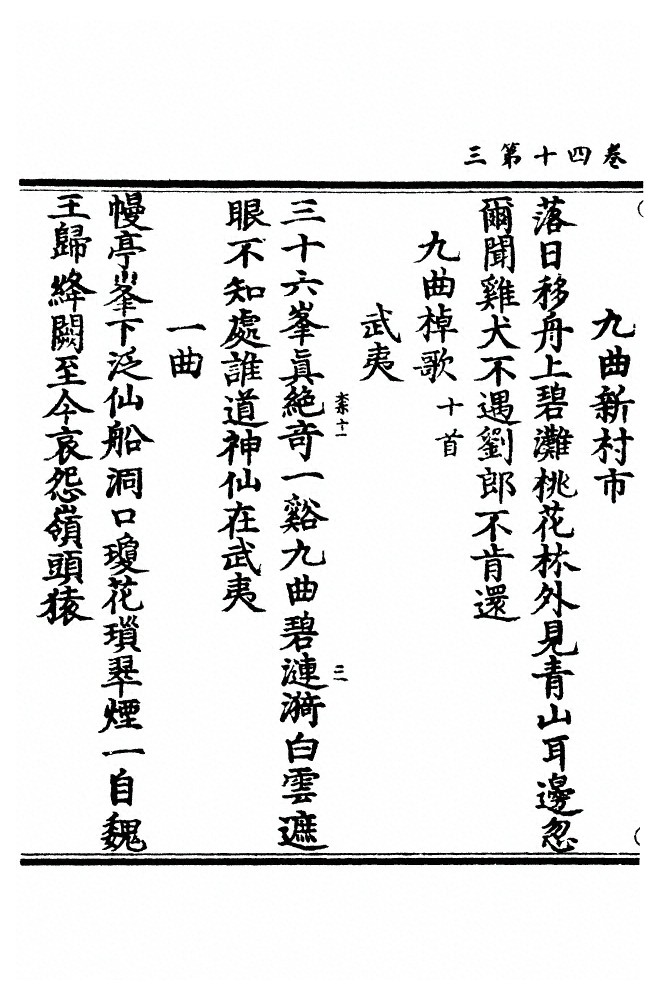 三第十四卷
九曲新村市
落日移舟上碧灘桃花林外見青山耳邊忽
爾聞雞犬不遇劉郎不肯還
九曲棹歌 十首
武夷
三十六峯眞絶奇一谿九曲碧漣漪白雲遮
眼不知處誰道神仙在武夷
一曲
幔亭峯下泛仙船洞口瓊花瑣翠煙一自魏
王歸絳闕至今哀怨嶺頭猿
十一
三